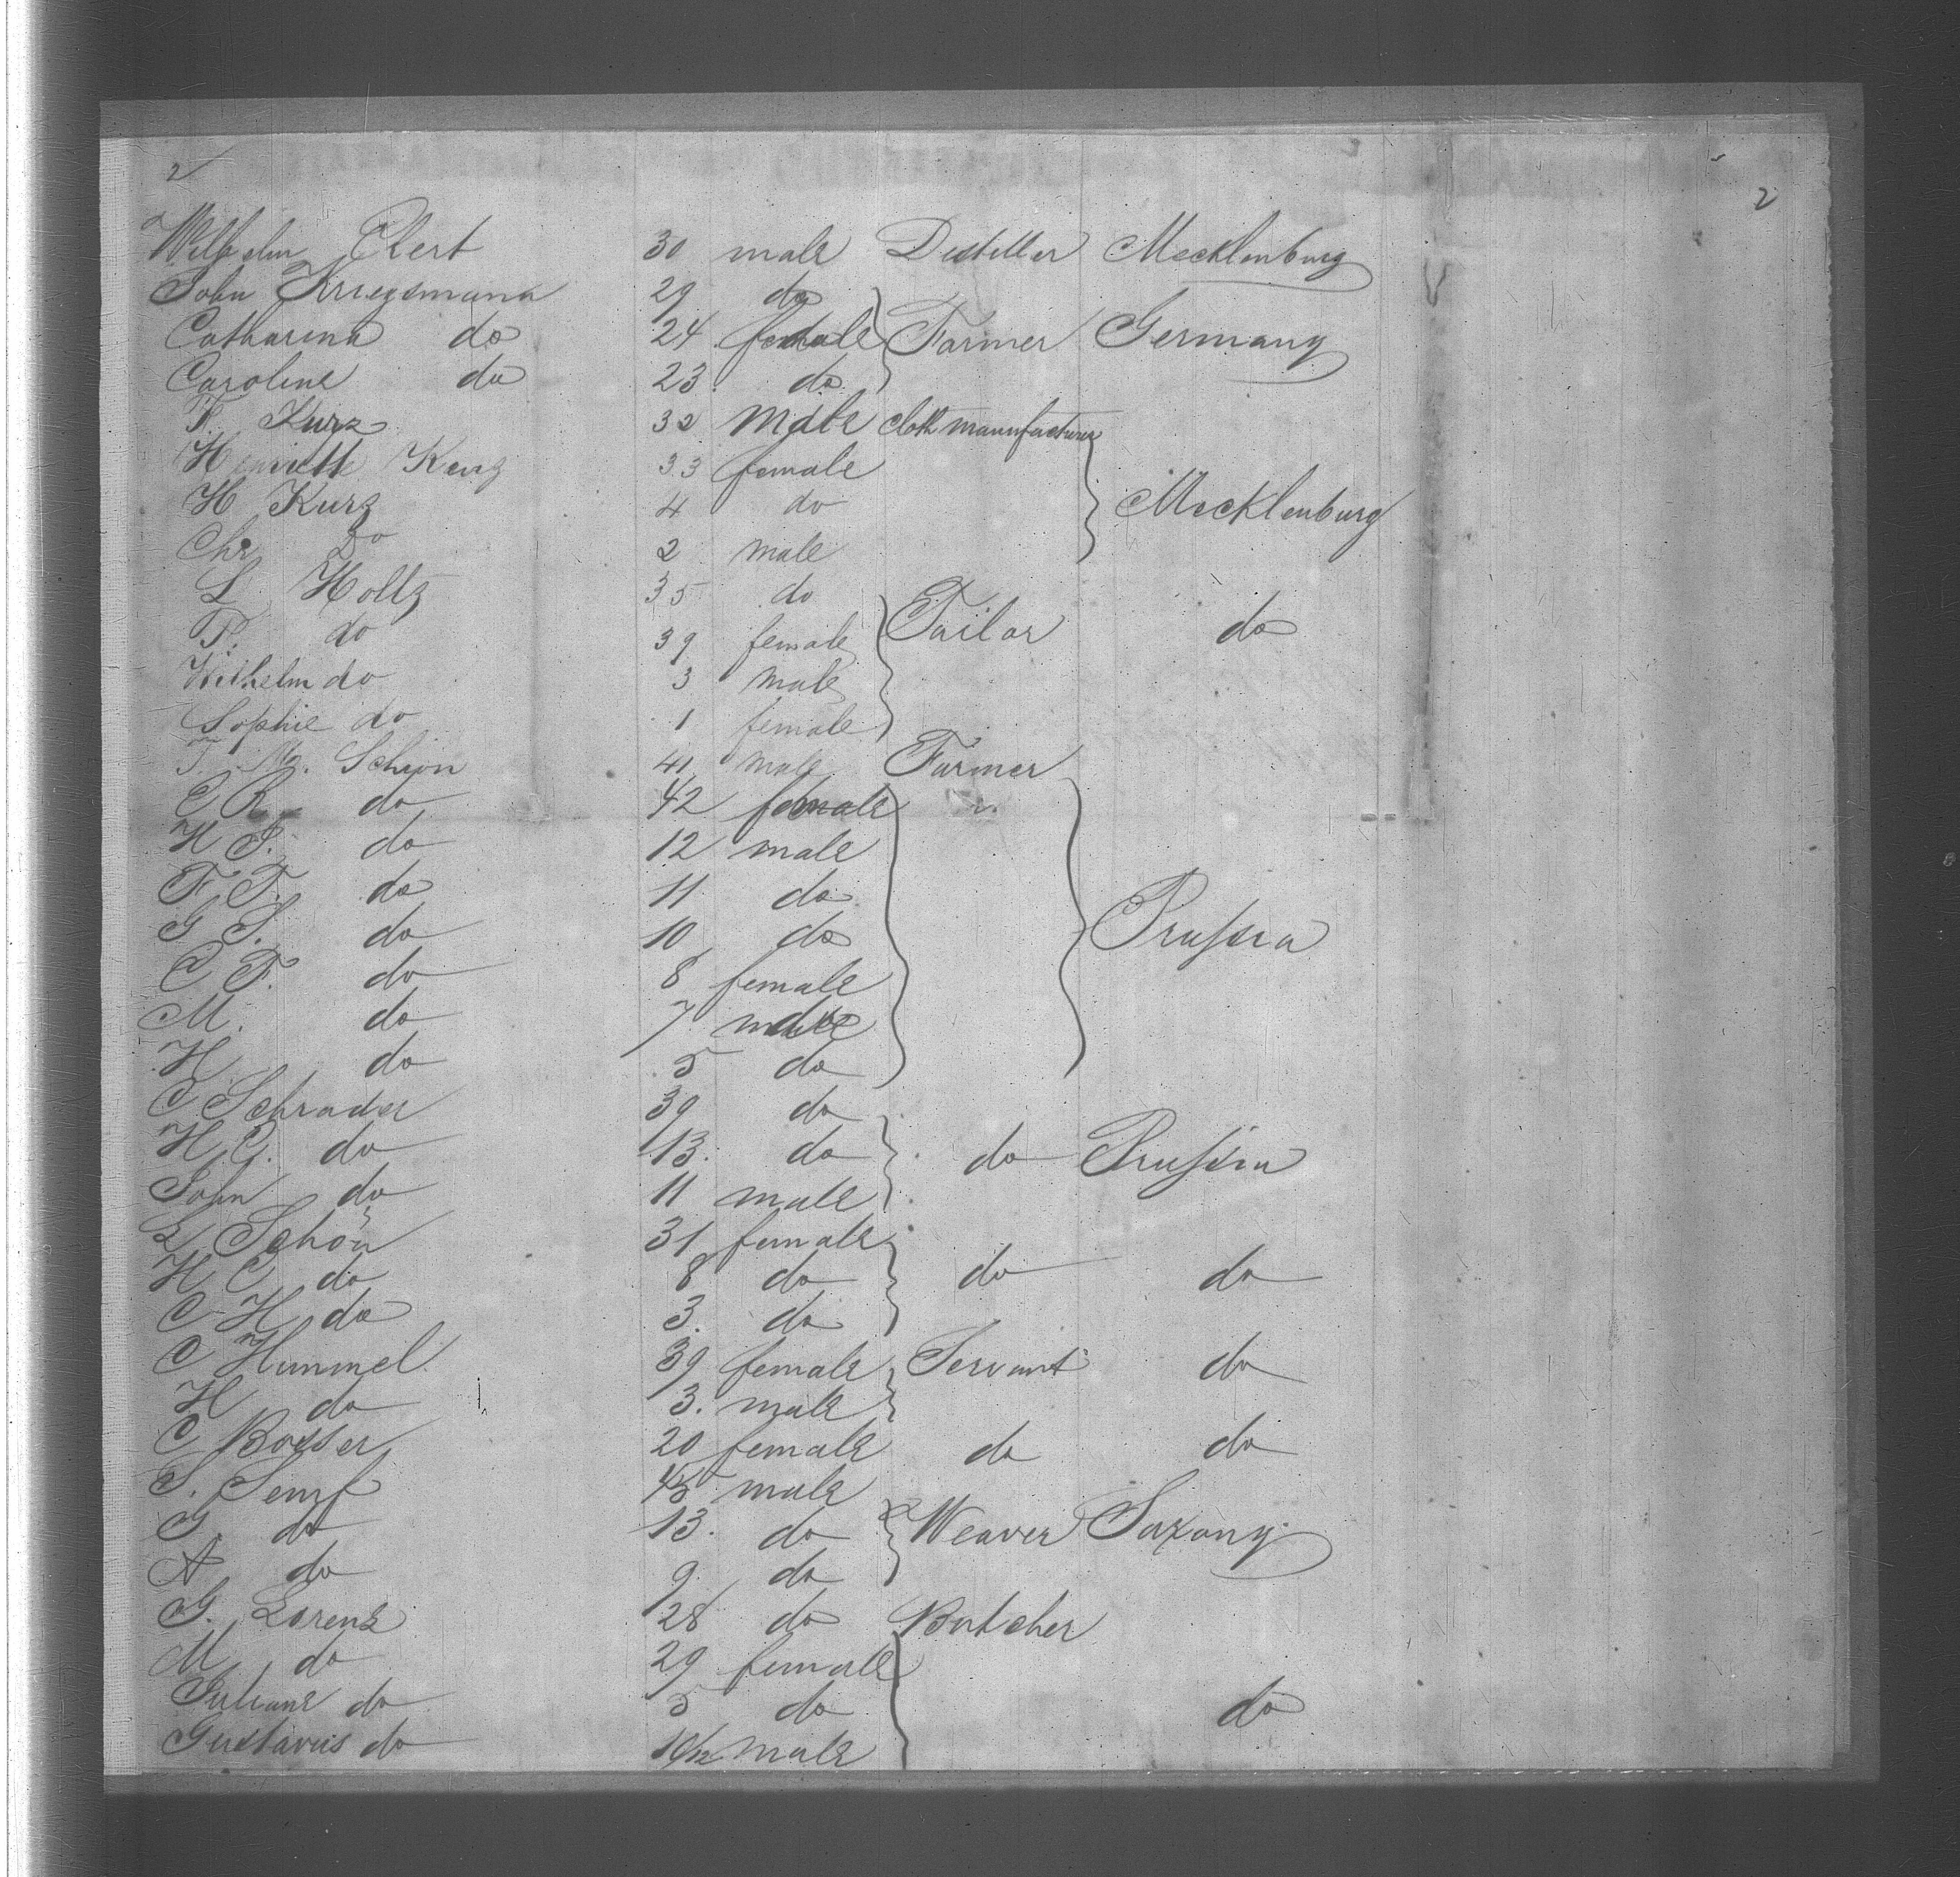 2 2
Wilhelm Ebert 30 male Distiller Mecklenburg
John Kriegsmann 29 do
Catharina do 24 female Farmer Germany
Caroline do 23 do
F. Kurz 32 male cloth manufacturer
Henriett Kurz 33 female
H Kurz 4 do Mecklenburg
Chr Do 2 male
L Holtz 35 do
P. do 39 female Tailor do
Wilhelm do 3 male
Sophie do 1 female
Schön 41 male Farmer
C R do 42 female
H S. do 12 male
F. F. do 11 do
G S. do 10 do Prussia
C F. do 8 female
M. do 7 male
H do 5 do
C Schrader 39 do
H. C. do 13. do do Prussia
John do 11 male
L Schön 31 female
H C do 8 do do do
C H do 3. do
C Hummel 39 female Servant do
H do 3. male
C 20 female do do
S. Senf 45 male
G do 13. do Weaver Saxony
A do 9 do
G. Lorenz 28 do Butcher
M do 29 female
Juliane do 5 do do
Gustavus do 10/12 male